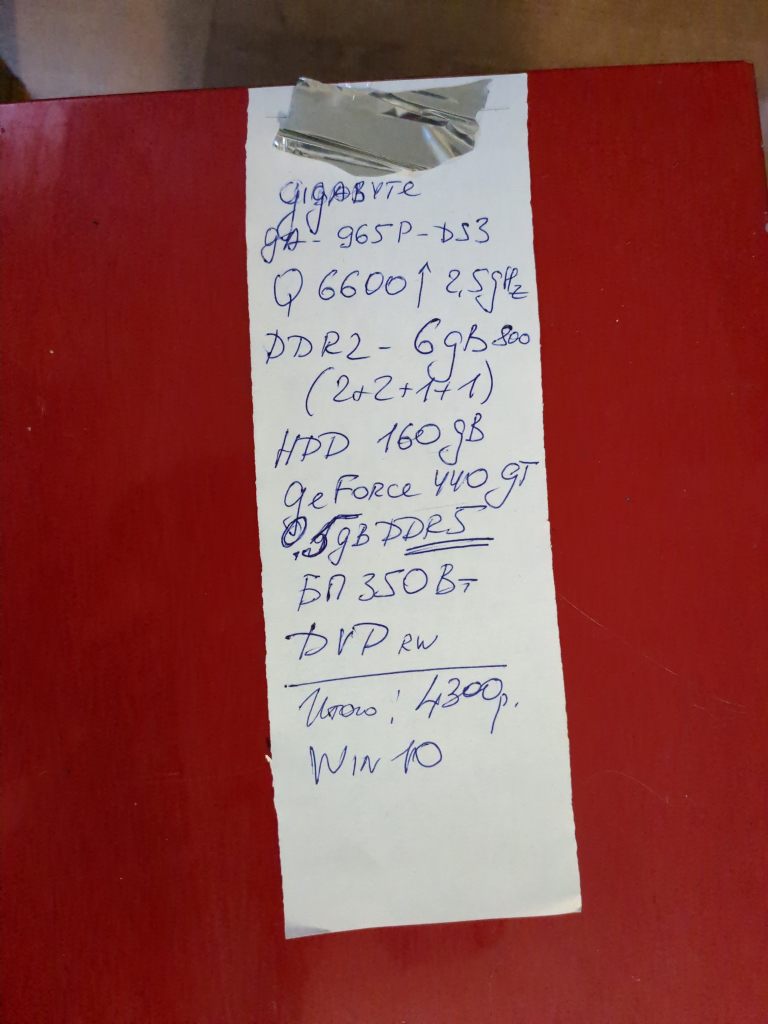 GIGABYTE
GA- 965P-DS3
Q 6600↑ 2,5gHz
DDR2 - 6gB 800
(2+2+1+1)
HDD 160 gB
GeForce 440 GT
0,5gB DDR5
БП 350 Вт
DVD RW
Итого: 4300р.
WIN 10